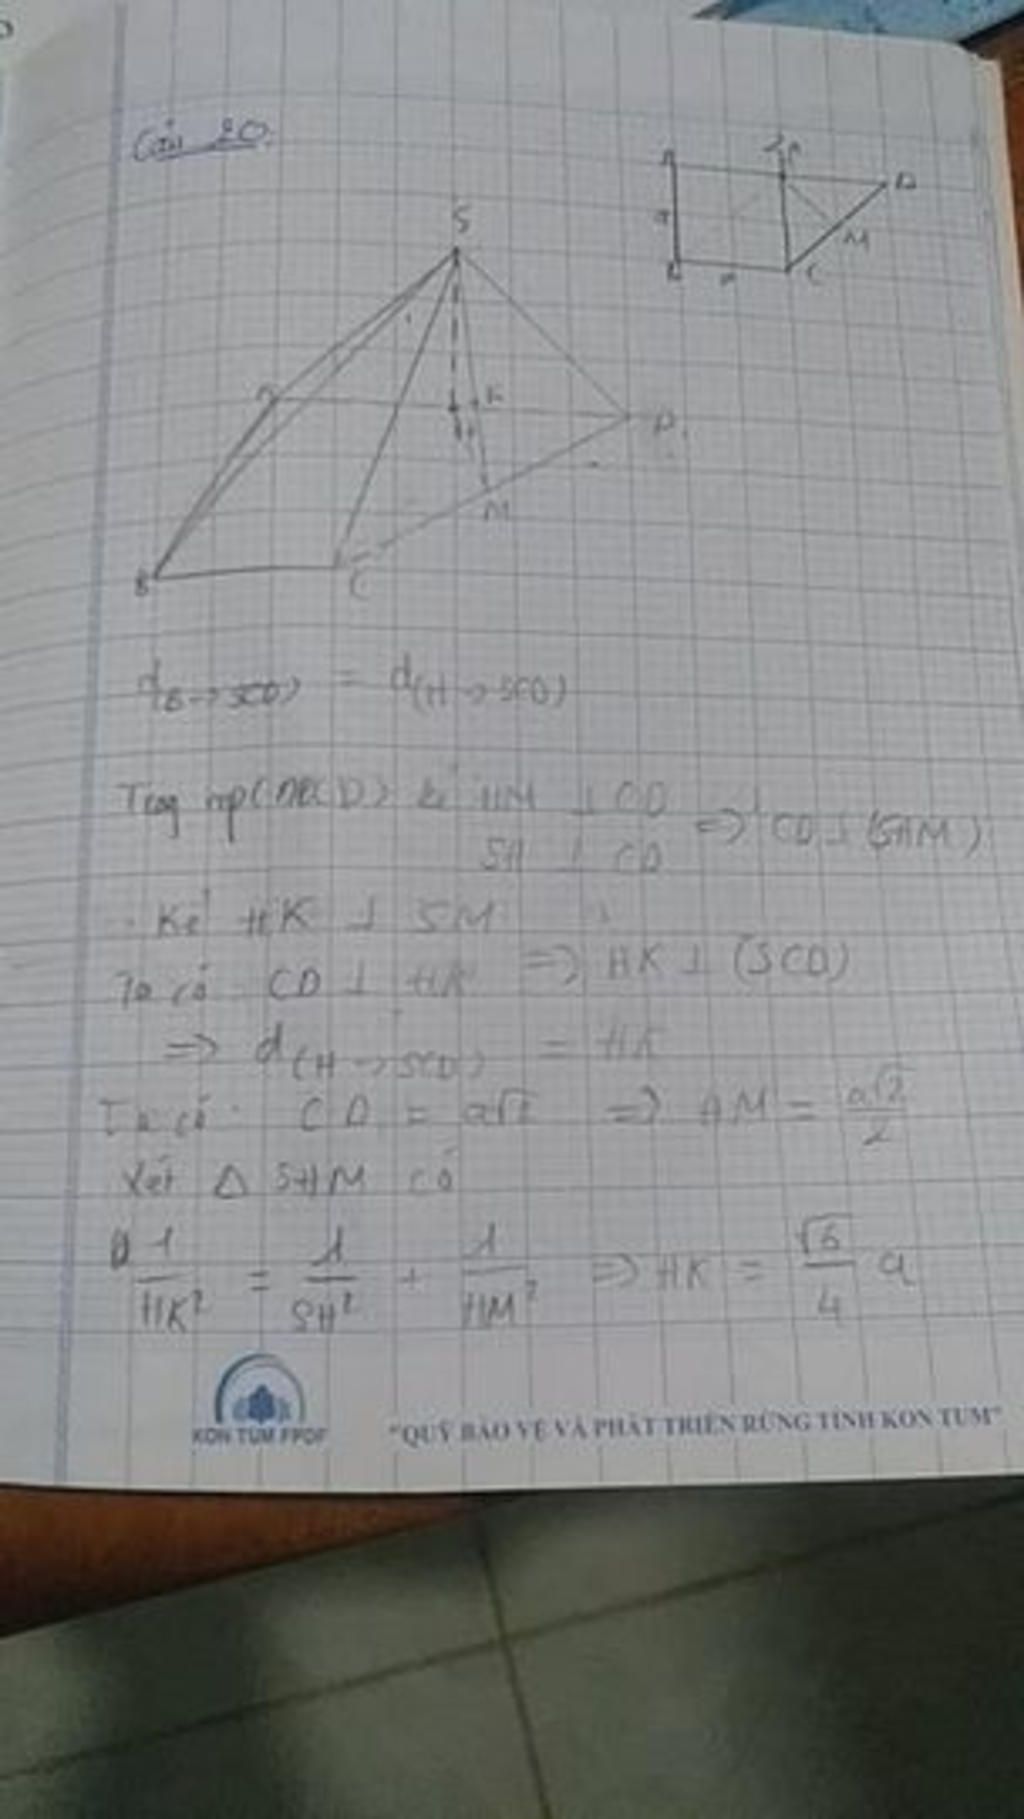 Câu 20.
A
H
D
a
M
B
a
C
S
A
K
H
D
M
B
C
d(B→SCD) = d(H→SCD)
Trong mp(ABCD) kẻ HM ⊥ CD
SH ⊥ CD => CD ⊥ (SHM)
Kẻ HK ⊥ SM
Ta có CD ⊥ HK => HK ⊥ (SCD)
=> d(H→SCD) = HK
Ta có: CD = a√2 => HM = a√2/2
Xét Δ SHM có
1/HK² = 1/SH² + 1/HM² => HK = √6/4 a
KON TUM FPDF
"QUỸ BẢO VỆ VÀ PHÁT TRIỂN RỪNG TỈNH KON TUM"